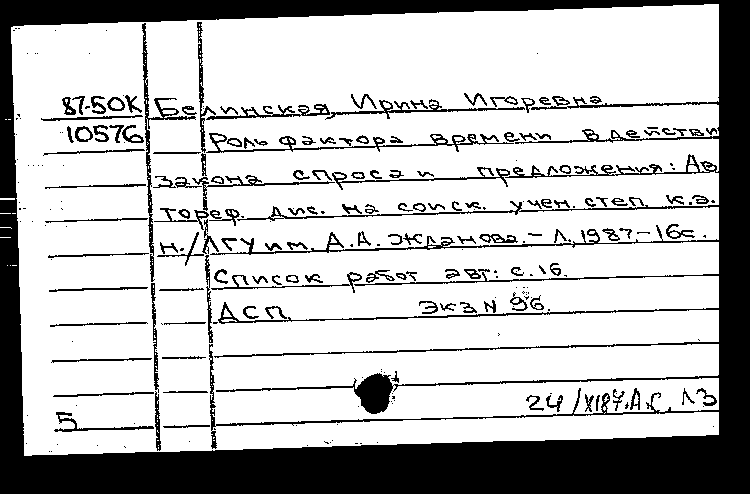 87-50К Белинская, Ирина Игоревна
10576 Роль фактора времени в действи
закона спроса и предложения: Ав
тореф. дис. на соиск. учен. степ. к.э.
н./ЛГУ им. А.А. Жданова.- Л, 1987.-16с.
Список работ авт: с.16.
ДСП Экз N 96.
24/XI87.А.С. ЛЗ
5